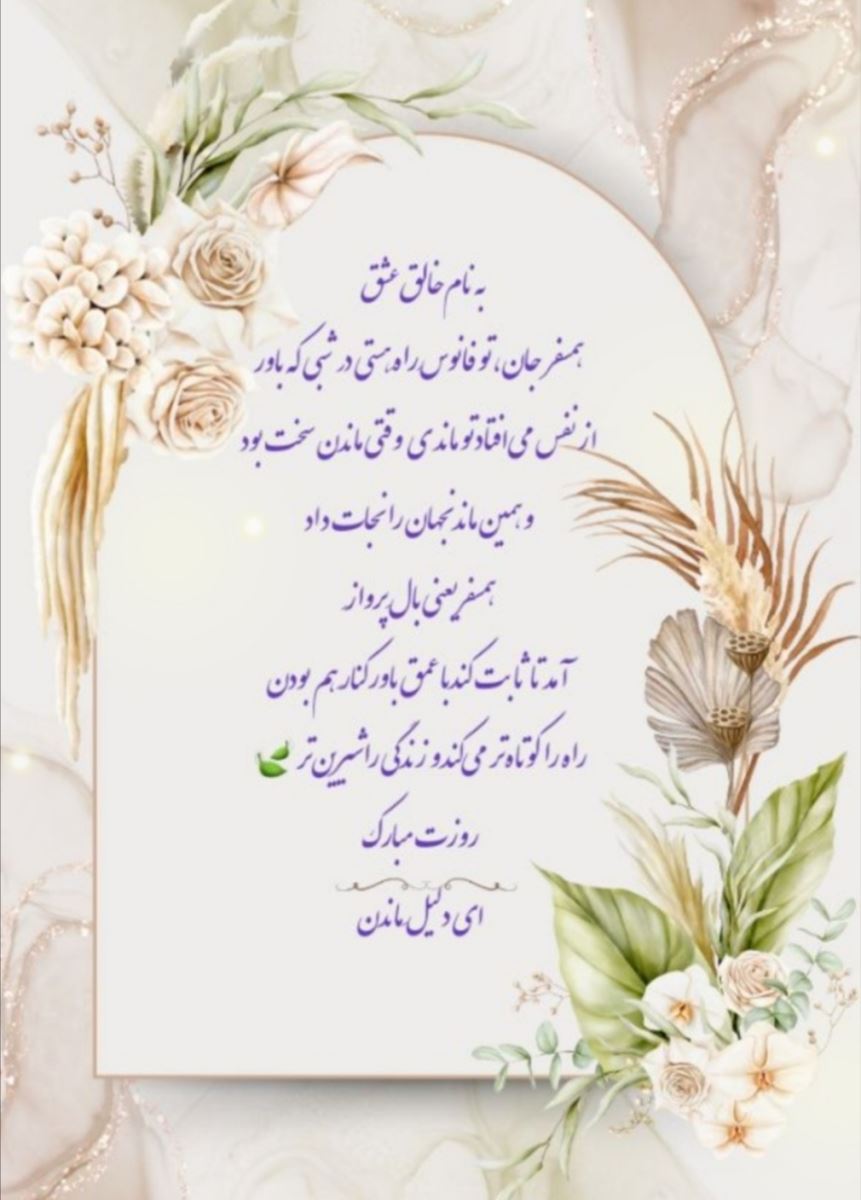 به نام خالق عشق
همسفر جان، تو فانوس راه هستی در شبی که باور
از نفس می افتاد تو ماندی وقتی ماندن سخت بود
و همین ماندنجهان را نجات داد
همسفر یعنی بال پرواز
آمد تا ثابت کند با عمق باور کنار هم بودن
راه را کوتاه تر می کند و زندگی را شیرین تر 🍃
روزت مبارک
ای دلیل ماندن